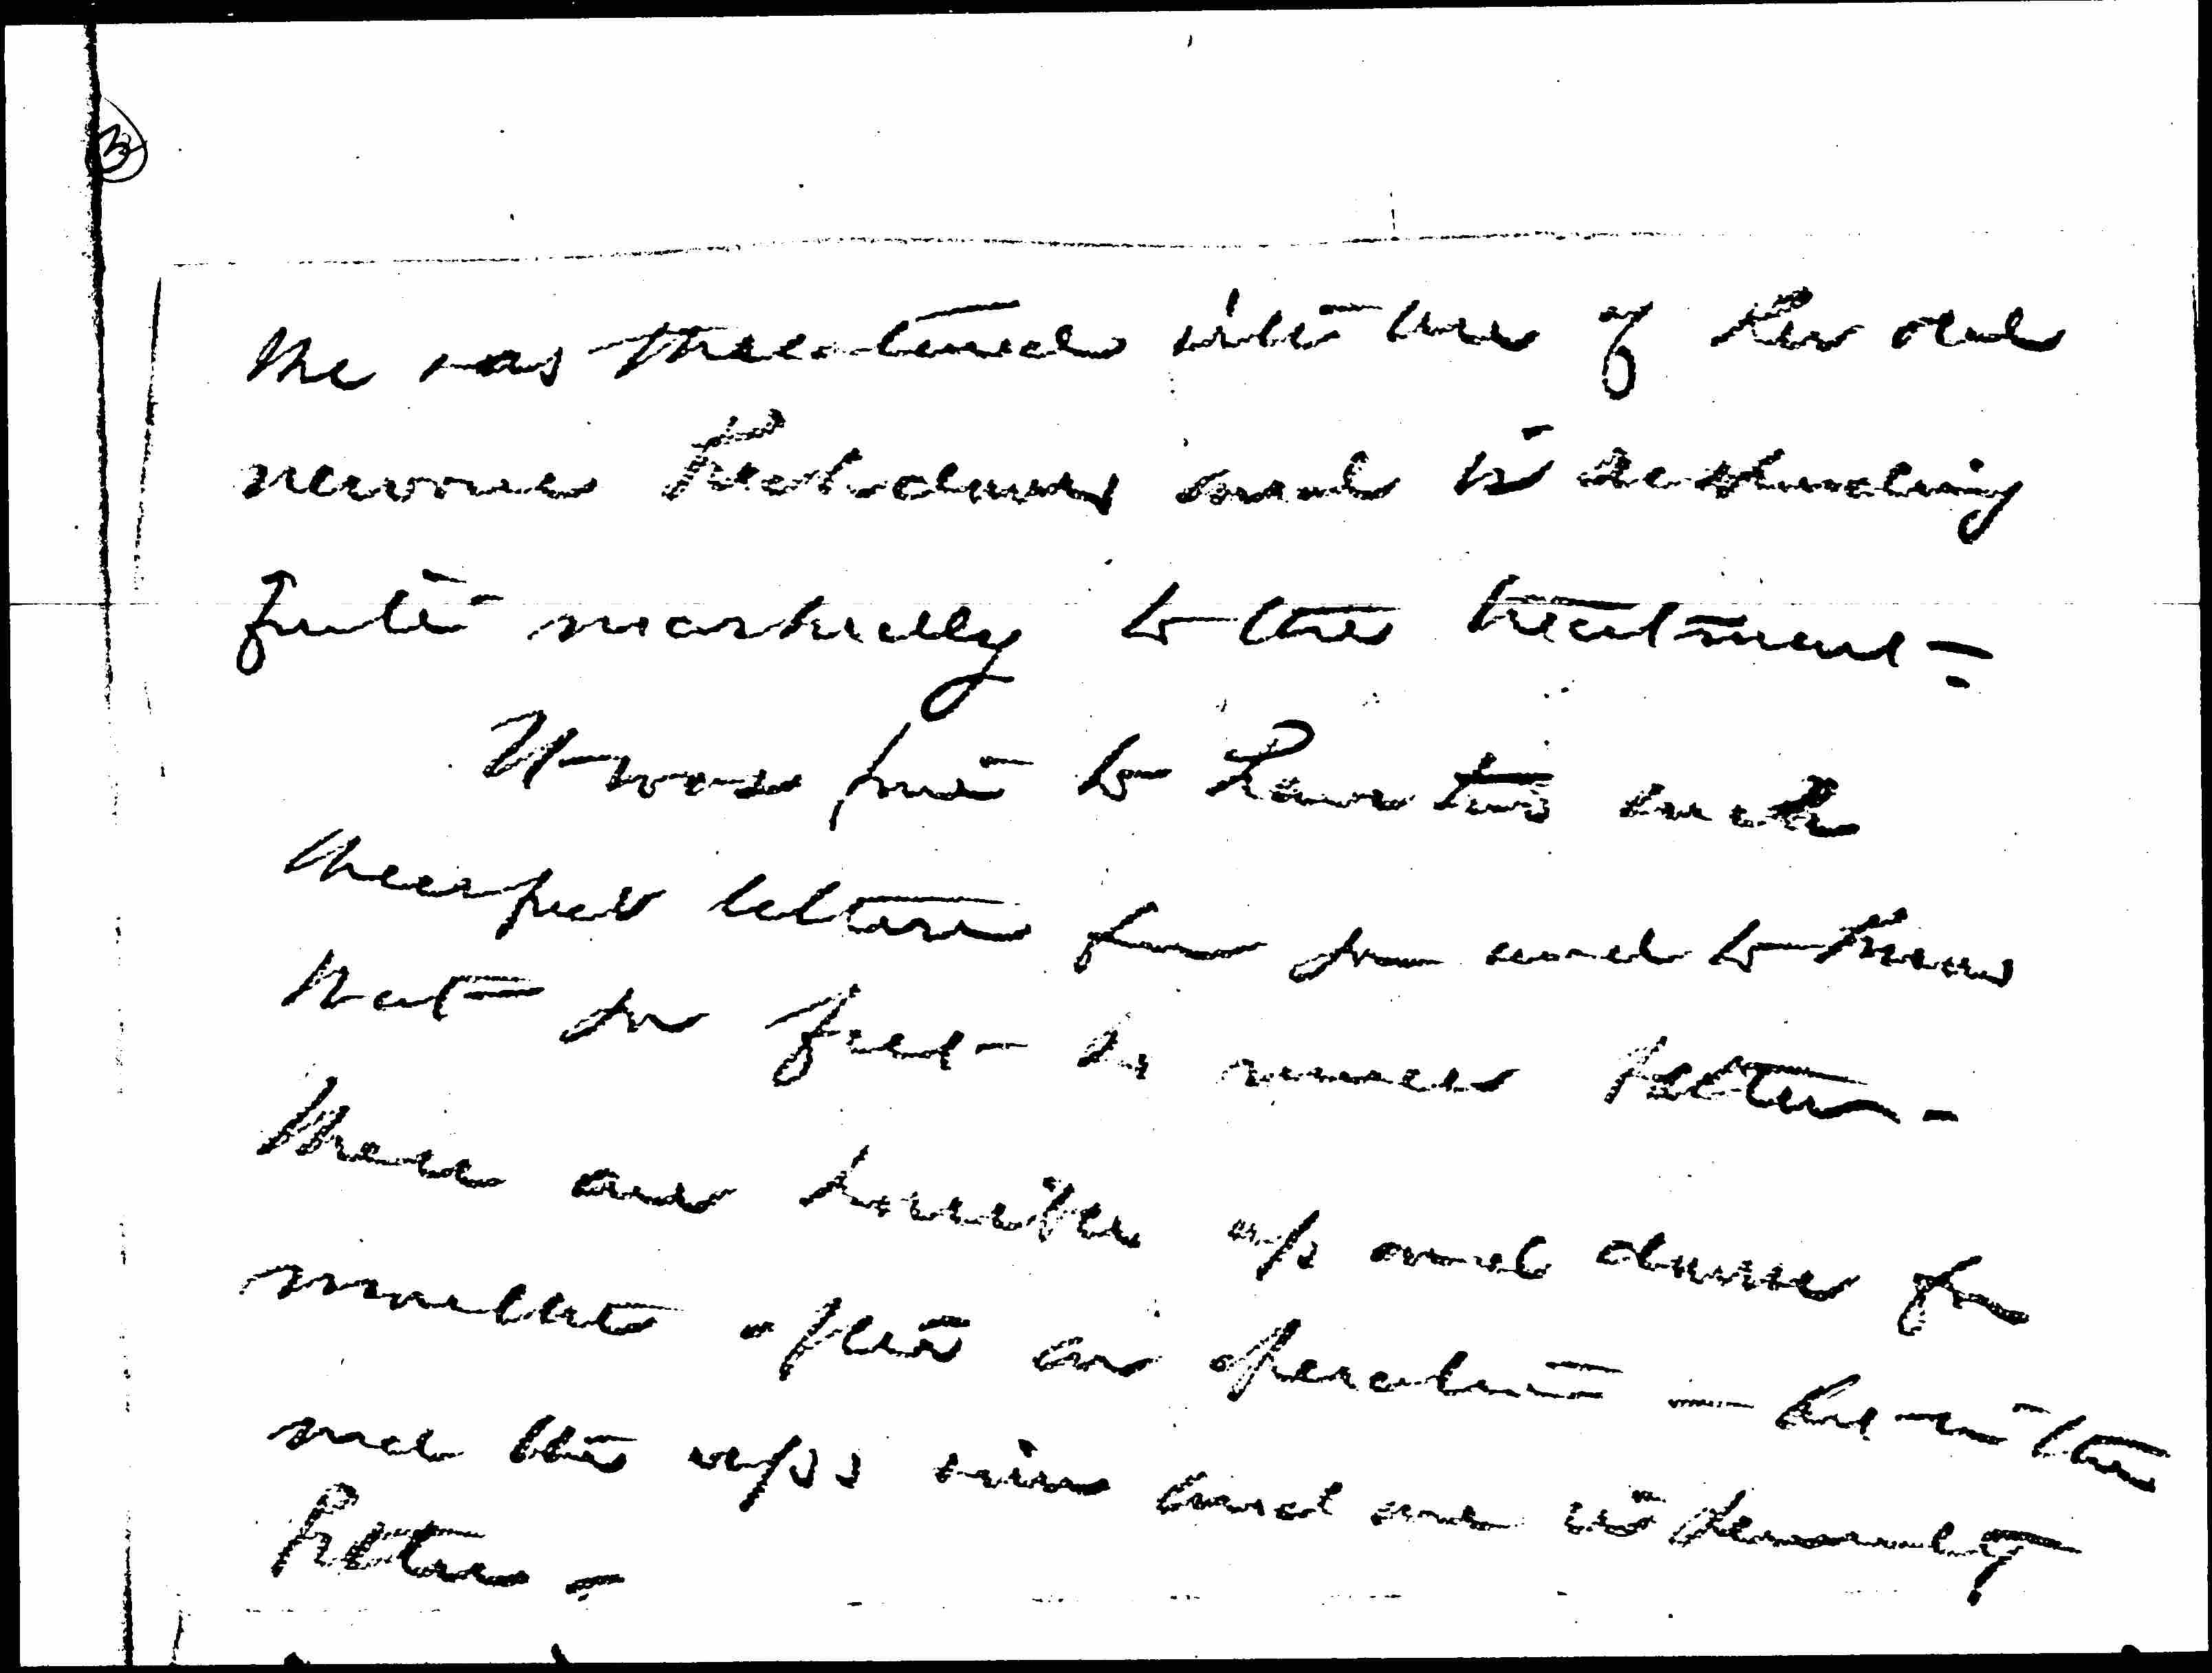 She was threatened with one of her old
nervous breakdowns and is responding
quite markedly to the treatment -
It was fine to have two such
cheerful letters from you and to know
that you feel so much better -
There are bound to be up and downs for
months after an operation - but in the
end the ups win and one is
better -